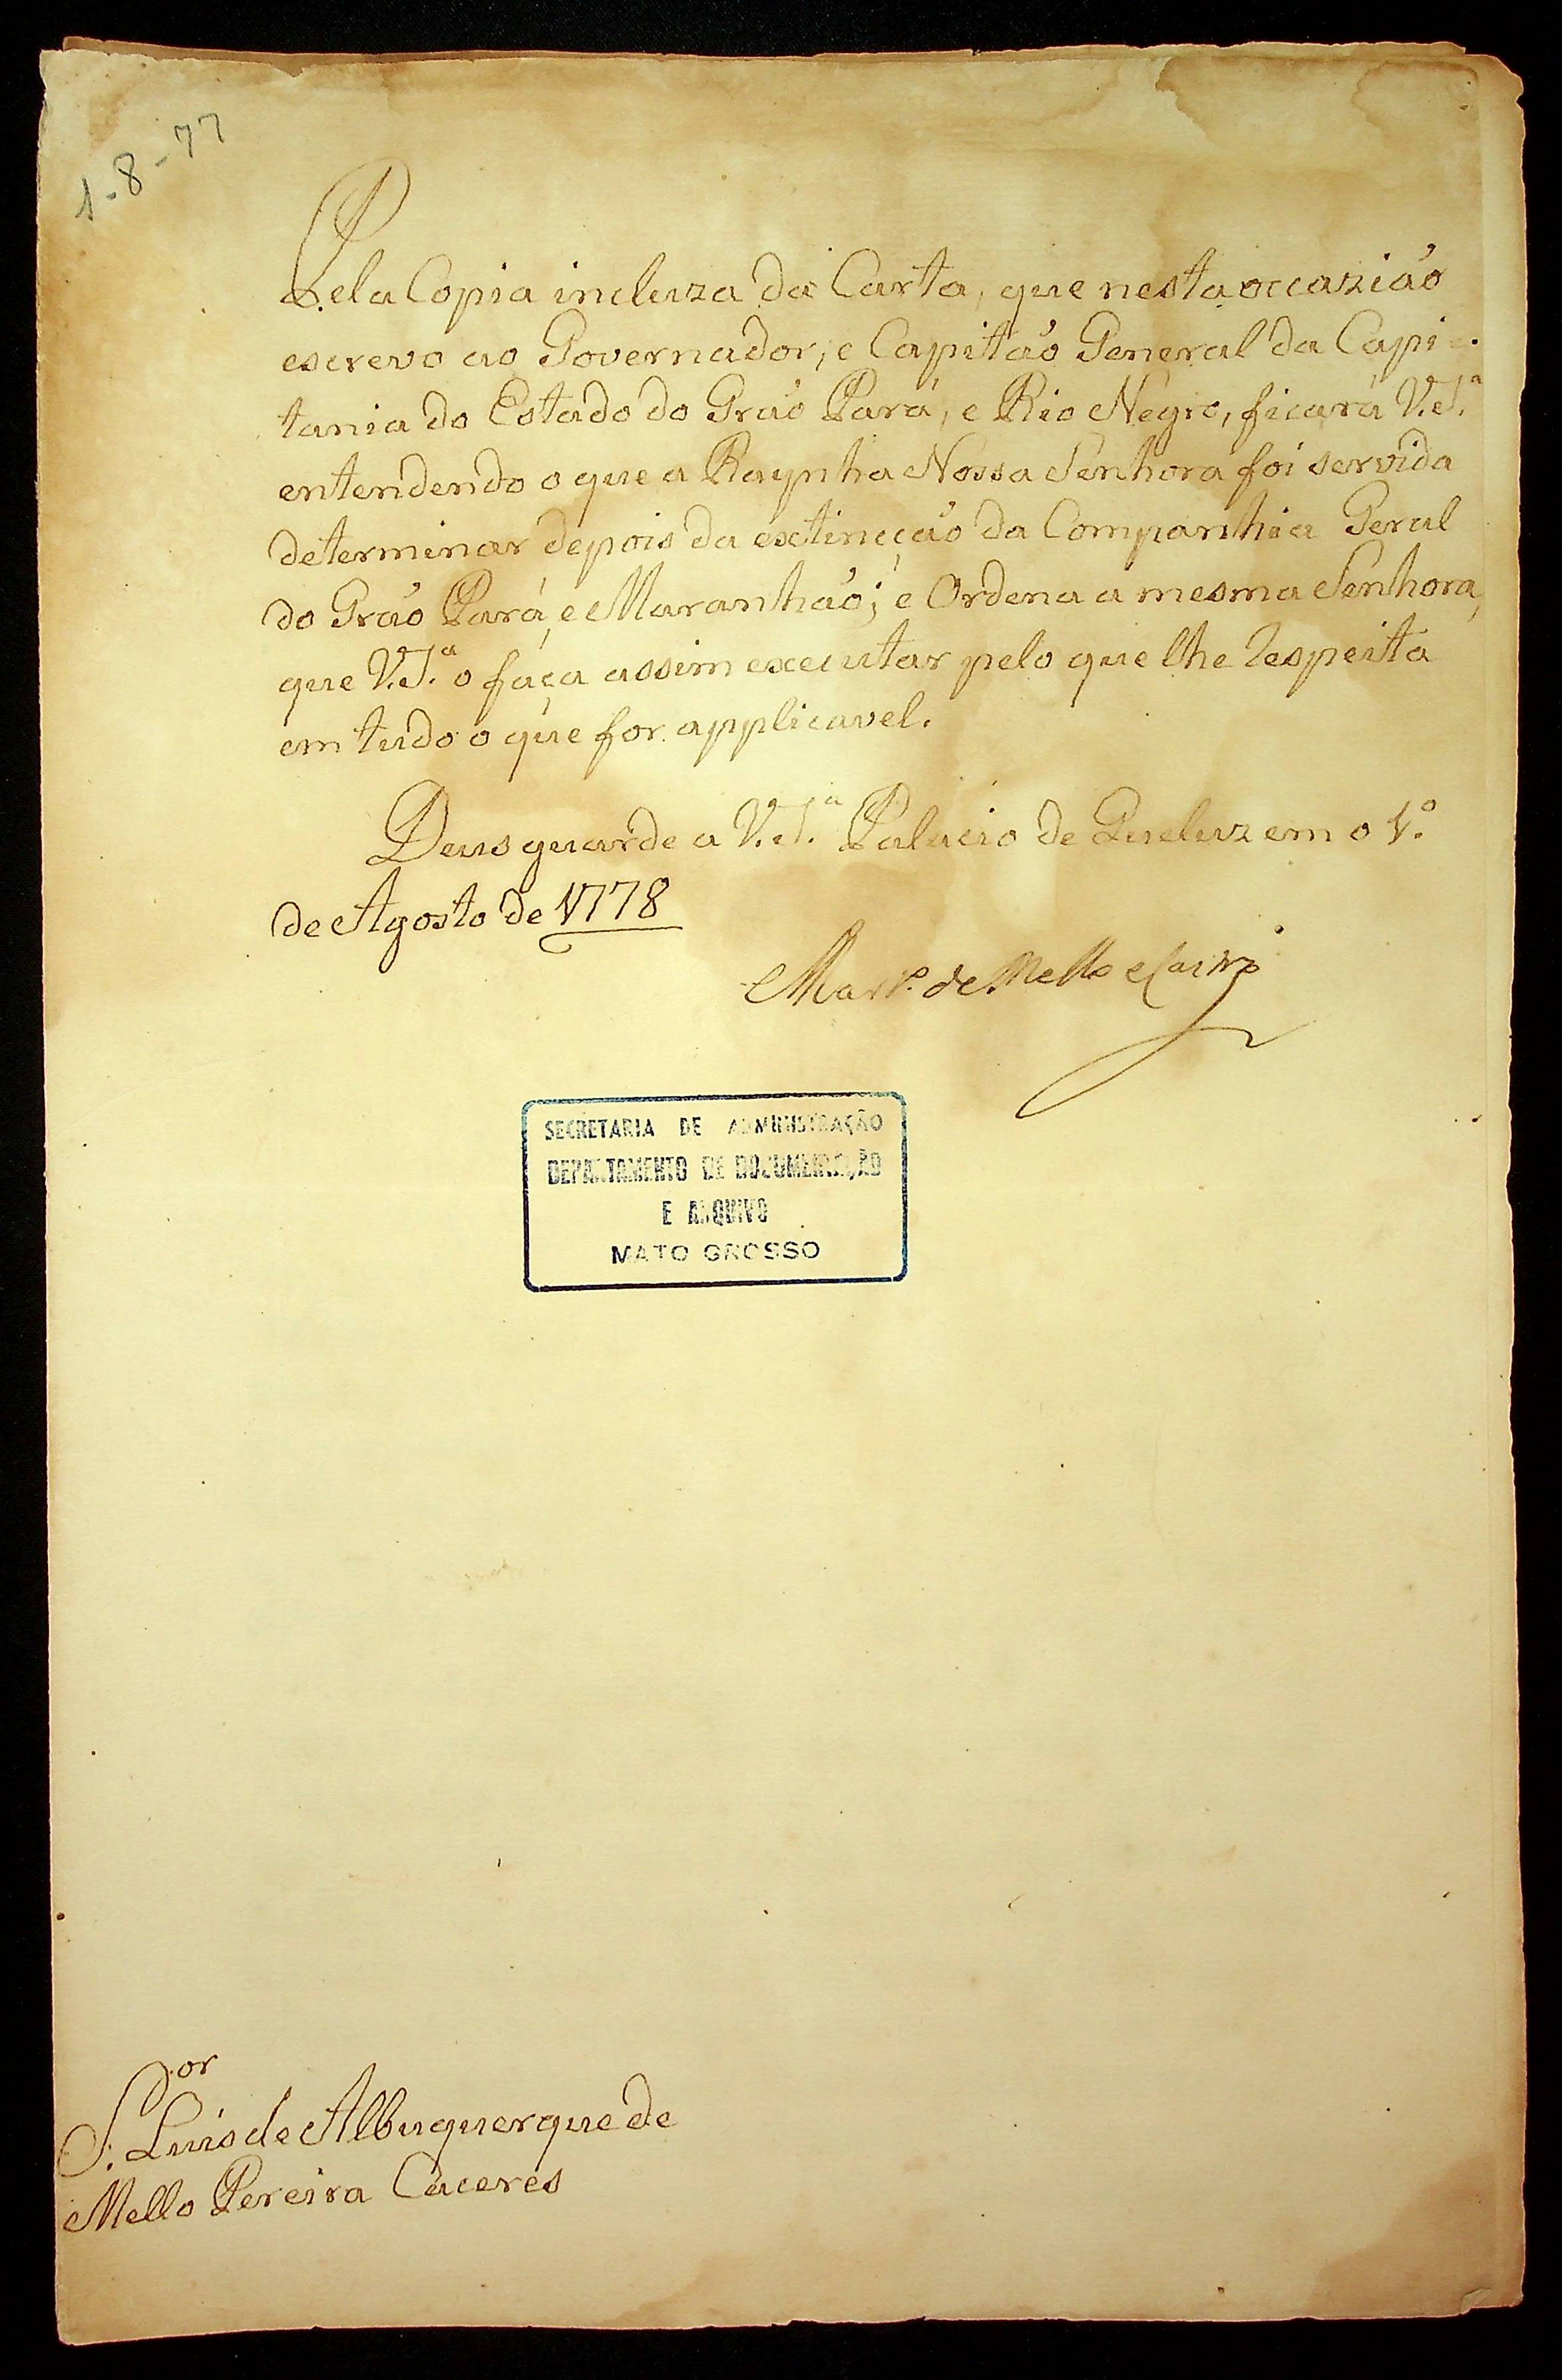 1-8-77
Pela Copia incluza da Carta, que nesta occazião
escrevo ao Governador, e Capitão General da Capi=
tania do Estado do Grão Pará, e Rio Negro, ficará V. S.ª
entendendo o que a Raynha Nossa Senhora foi servida
determinar depois da extincção da Companhia Geral
do Grão Pará, e Maranhão; e Ordena a mesma Senhora,
que V. S.ª o faça assim executar pelo que lhe respeita
em tudo o que for applicavel.
Deus guarde a V. S.ª Palacio de Queluz em o 1.º
de Agosto de 1778
Mart.º de Mello e Castro
SECRETARIA DE ADMINISTRAÇÃO
DEPARTAMENTO DE DOCUMENTAÇÃO
E ARQUIVO
MATO GROSSO
S.or Luis de Albuquerque de
Mello Pereira Caceres